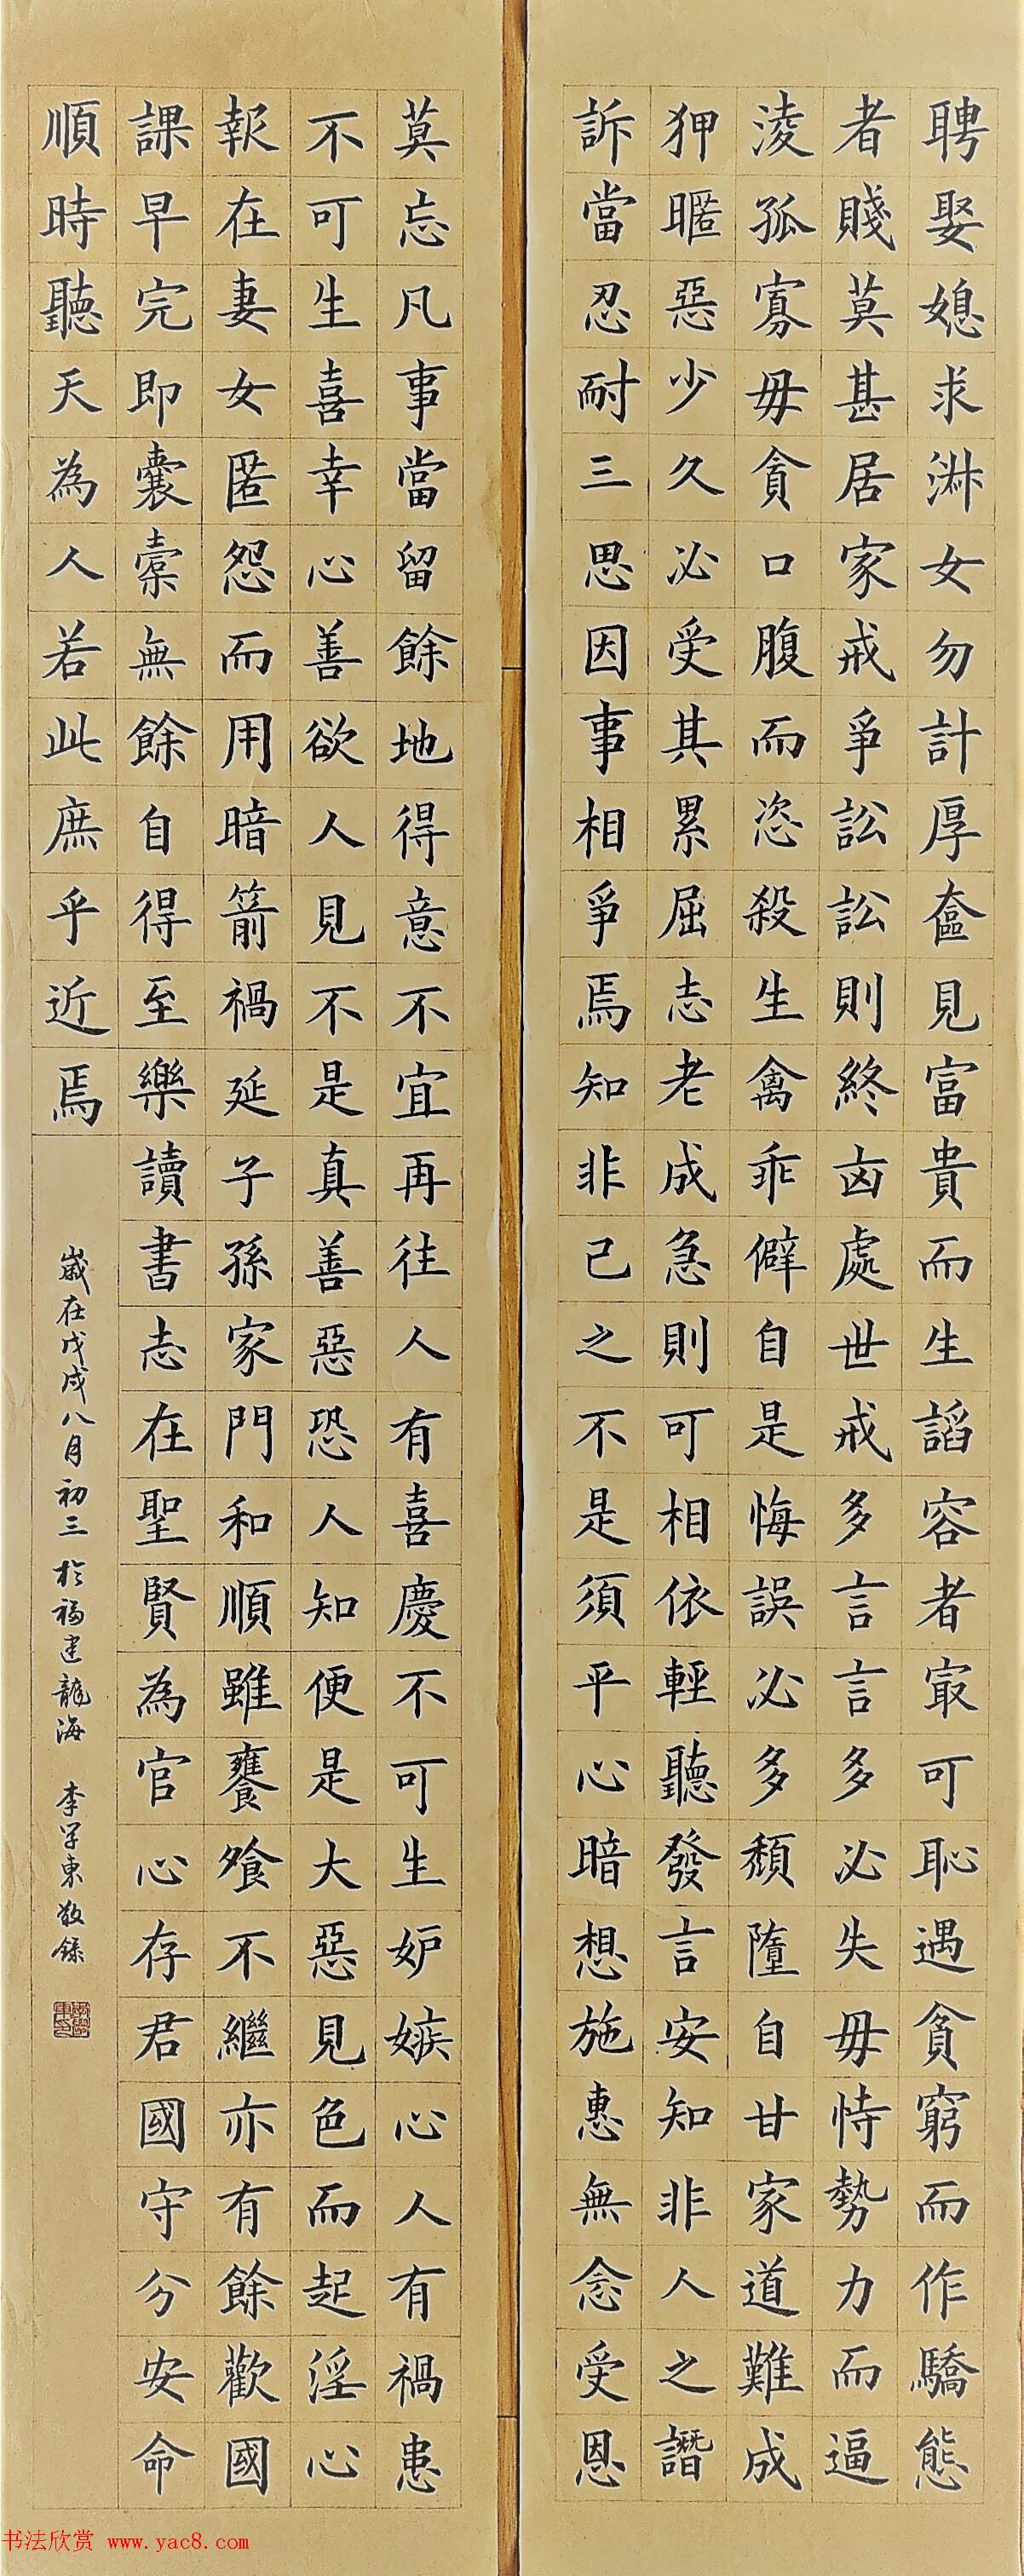 聘娶媳求淋女勿計厚奩見富貴而生謟容者㝡可恥遇貧窮而作驕態
者賤莫甚居家戒爭訟訟則終凶處世戒多言言多必失毋恃勢力而逼
淩孤寡毋貪口腹而恣殺生禽乖僻自是悔誤必多頹隳自甘家道難成
狎暱惡少久必受其累屈志老成急則可相依輕聽發言安知非人之譖
訴當忍耐三思因事相爭焉知非己之不是須平心暗想施惠無念受恩
莫忘凡事當留餘地得意不宜再往人有喜慶不可生妒嫉心人有禍患
不可生喜幸心善欲人見不是真善惡恐人知便是大惡見色而起淫心
報在妻女匿怨而用暗箭禍延子孫家門和順雖饔飧不繼亦有餘歡國
課早完即囊橐無餘自得至樂讀書志在聖賢為官心存君國守分安命
順時聽天為人若此庶乎近焉
歲在戊戌八月初三於福建龍海 李學東敬錄
书法欣赏 www.yac8.com